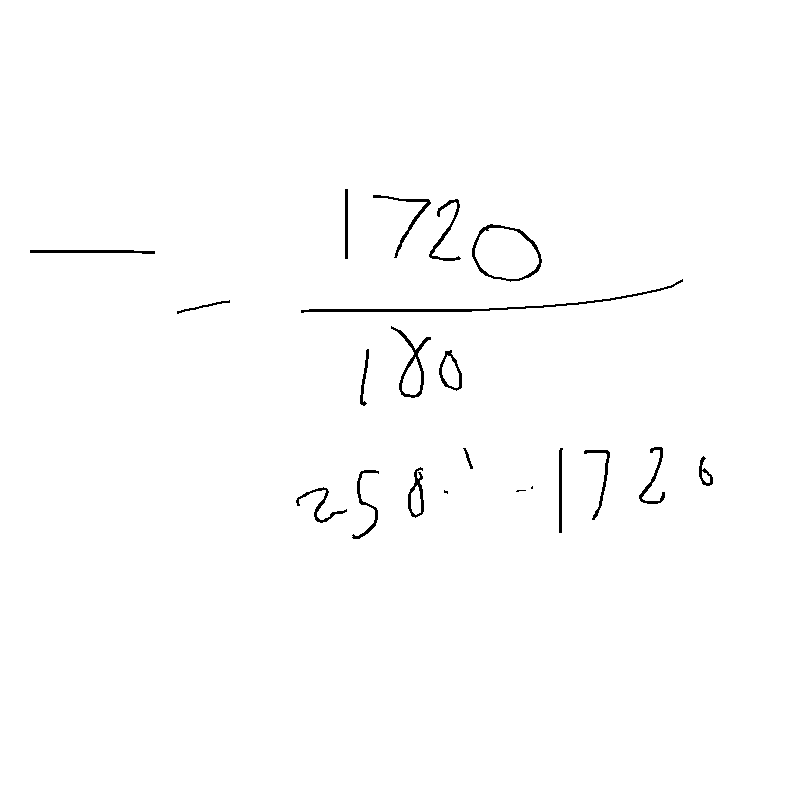 — - 1720
180
258.' - 1720